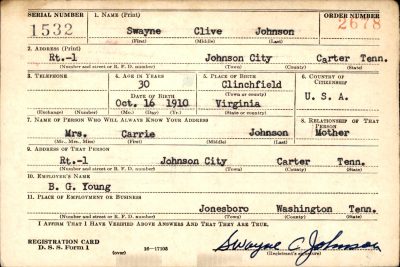 SERIAL NUMBER 1. NAME (Print) ORDER NUMBER
1532 Swayne Clive Johnson 2678
(First) (Middle) (Last)
2. ADDRESS (Print)
Rt.-1 Johnson City Carter Tenn.
(Number and street or R. F. D. number) (Town) (County) (State)
3. TELEPHONE 4. AGE IN YEARS 5. PLACE OF BIRTH 6. COUNTRY OF
30 Clinchfield CITIZENSHIP
DATE OF BIRTH (Town or county)
Oct. 16 1910 Virginia U. S. A.
(Exchange) (Number) (Mo.) (Day) (Yr.) (State or country)
7. NAME OF PERSON WHO WILL ALWAYS KNOW YOUR ADDRESS 8. RELATIONSHIP OF THAT
PERSON
Mrs. Carrie Johnson Mother
(Mr., Mrs., Miss) (First) (Middle) (Last)
9. ADDRESS OF THAT PERSON
Rt.-1 Johnson City Carter Tenn.
(Number and street or R. F. D. number) (Town) (County) (State)
10. EMPLOYER'S NAME
B. G. Young
11. PLACE OF EMPLOYMENT OR BUSINESS
Jonesboro Washington Tenn.
(Number and street or R. F. D. number) (Town) (County) (State)
I AFFIRM THAT I HAVE VERIFIED ABOVE ANSWERS AND THAT THEY ARE TRUE.
REGISTRATION CARD
D. S. S. Form 1 (over) 16—17105 Swayne C Johnson
(Registrant's signature)